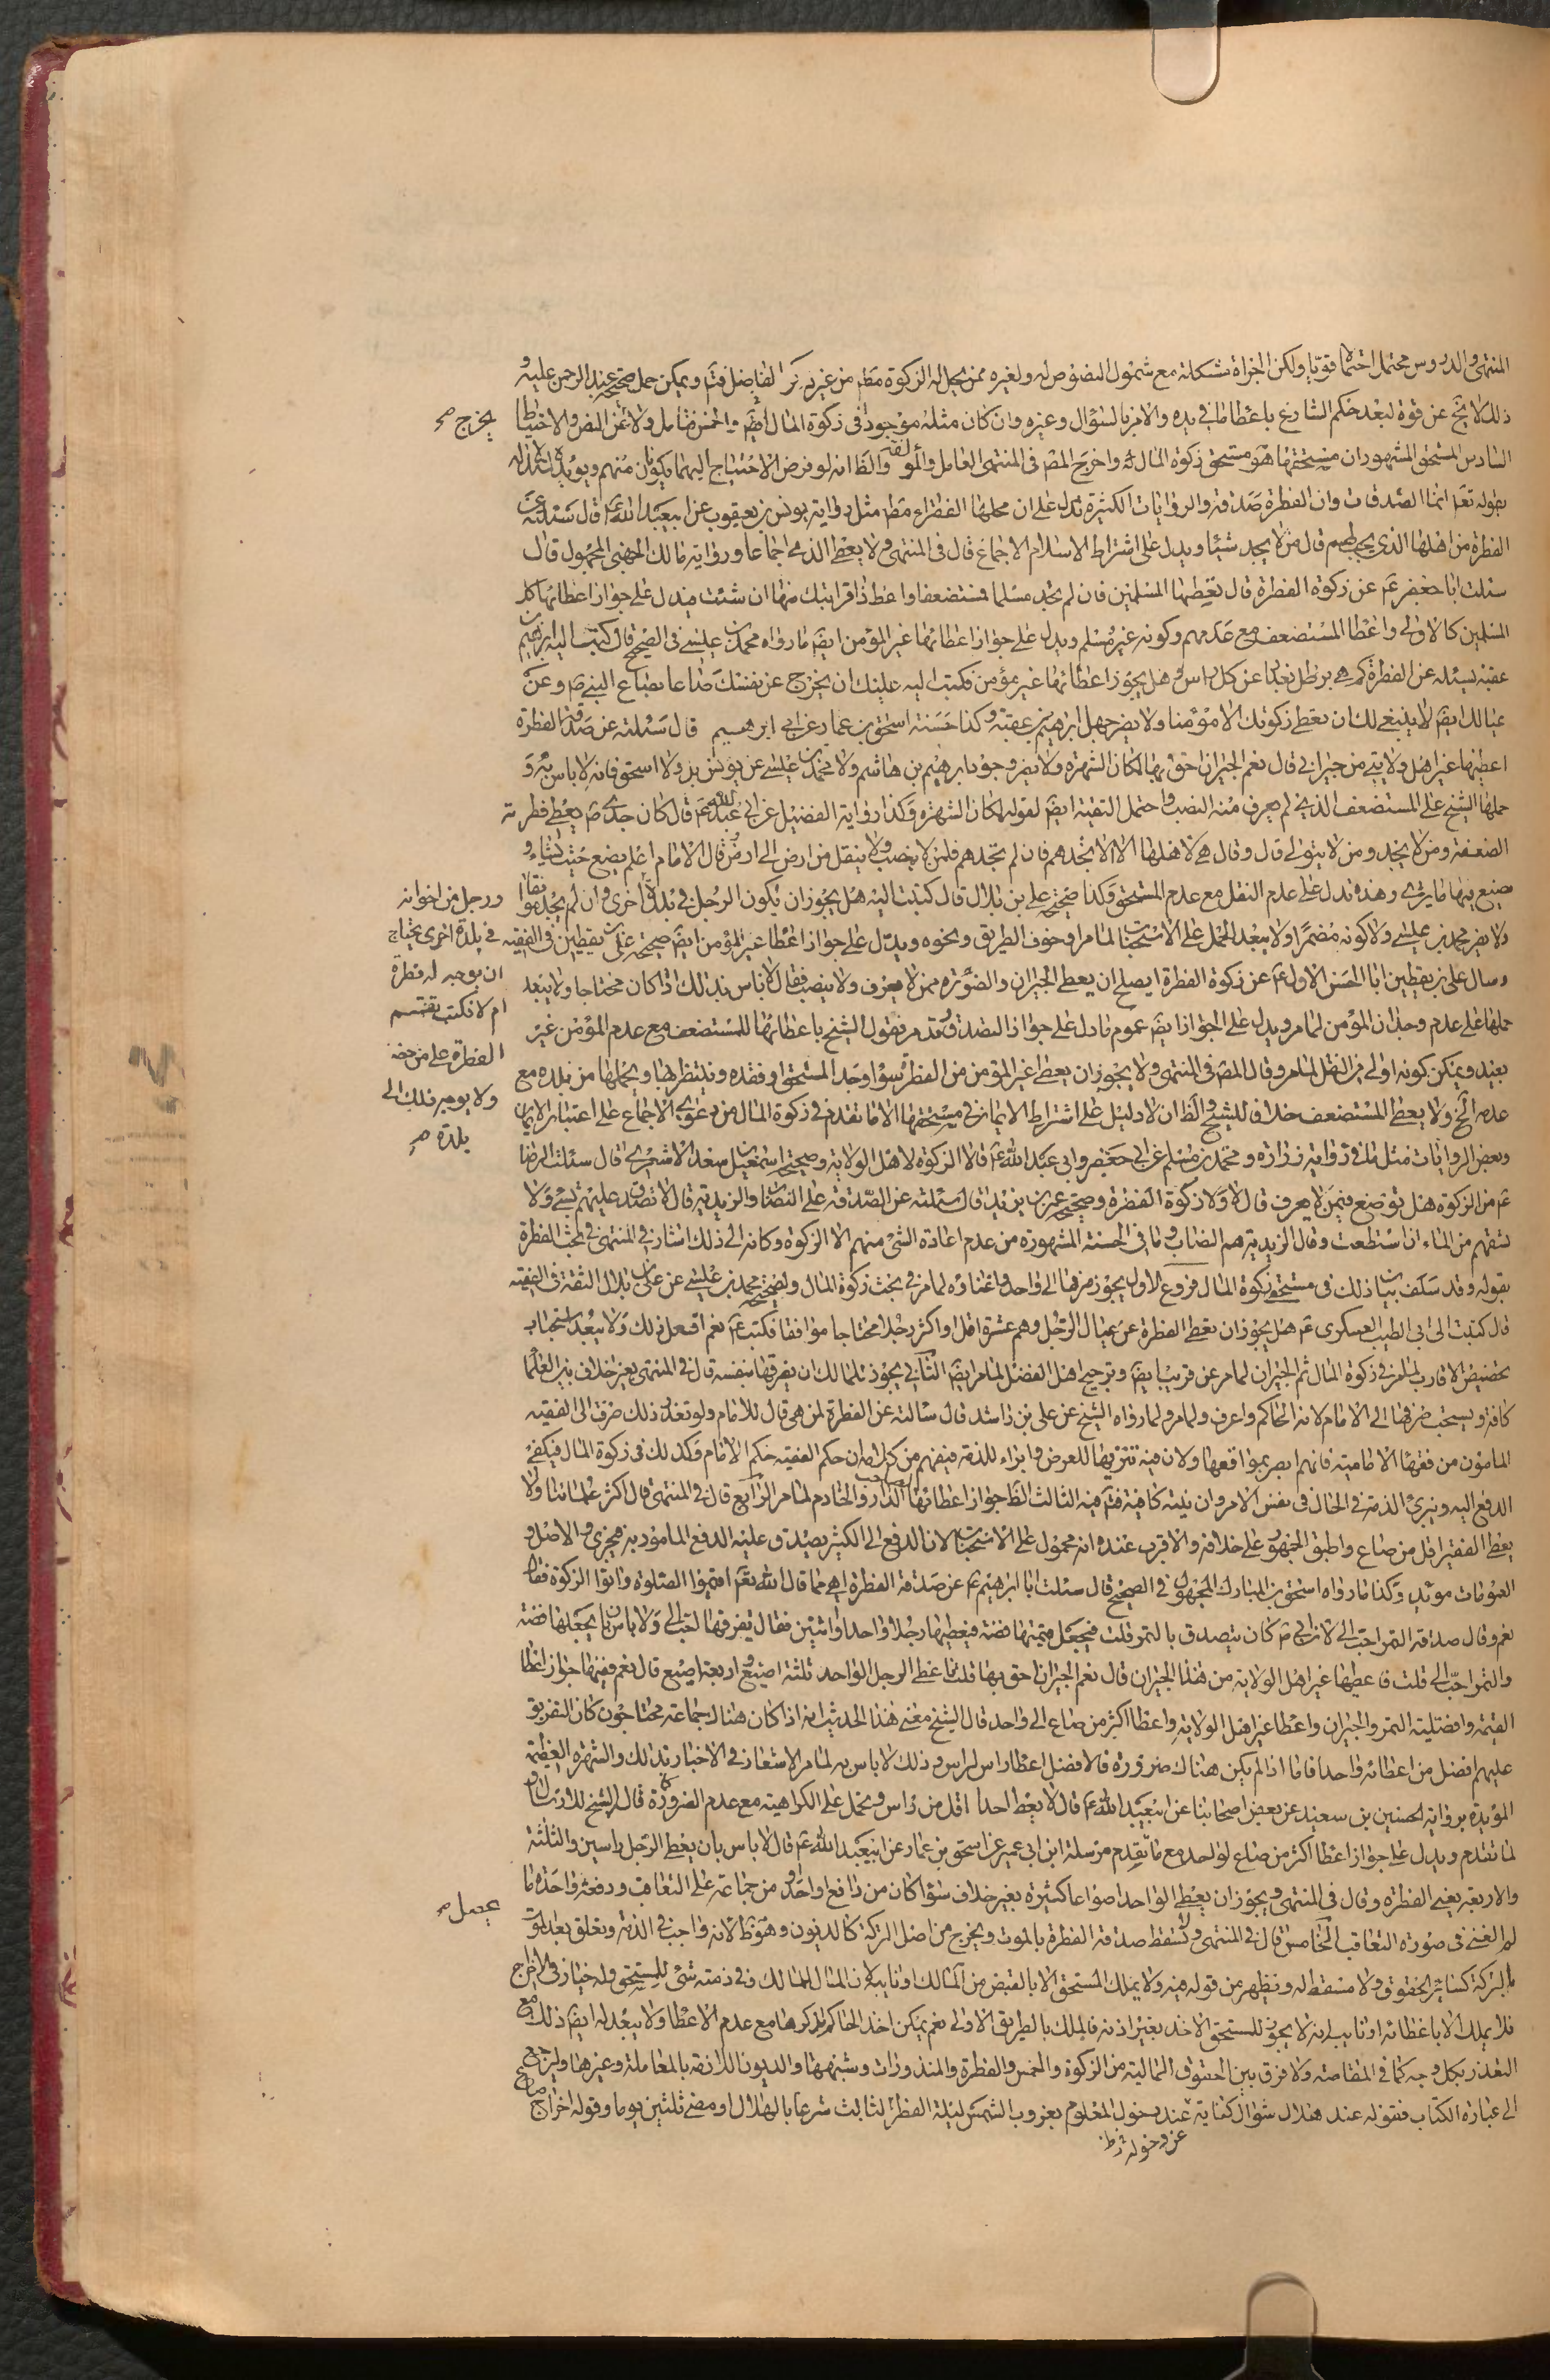 المنتهى والدروس محتمل احتمالا قويا ولكن الجرأة مشكلة مع شمول النصوص له ولغيره ممن يحل له الزكوة مط من غير الفاضل فتم ويمكن حمل صحيحة عبد الرحمن عليه و
ذلك لا يخ عن قوة لبعد حكم الشارع باعطا ما في يده والامر بالسؤال وغيره وان كان مثله موجودا في زكوة المال ايضم والخمس فتامل ولا تخرج عن النص والاحتياط
السادس المستحق المشهور ان مستحقها هو مستحق زكوة المال واخرج المصم في المنتهى العامل والمولفة والظ انه لو فرض الاحتياج اليهما يكونان منهم ويؤيده الاستدلال
بقوله تعم انما الصدقات وان الفطرة صدقة والروايات الكثيرة تدل على ان محلها الفقراء مط مثل رواية يونس بن يعقوب عن ابيعبد الله عم قال سئلته عن
الفطرة من اهلها الذي يجب لهم قال من لا يجد شيئا ويدل على اشتراط الاسلام الاجماع قال في المنتهى ولا يعطى الذمي اجماعا ورواية مالك الجهني المجهول قال
سئلت ابا جعفر عم عن زكوة الفطرة قال تعطيها المسلمين فان لم تجد مسلما فمستضعفا واعط ذا قرابتك منها ان شئت فيدل على جواز اعطائها كل
المسلمين كالاولى واعطا المستضعف مع عدمهم وكونه غير مسلم ويدل على جواز اعطائها غير المؤمن ايضم ما رواه محمد بن عيسى في الصحيح قال كتب اليه ابرهيم بن
عقبة يسئله عن الفطرة كم هي برطل بغداد عن كل راس وهل يجوز اعطائها غير مؤمن فكتب اليه عليك ان يخرج عن نفسك صاعا بصاع النبي ص وعن
عيالك ايضم لا ينبغي لك ان تعطي زكوتك الا مؤمنا ولا يضر جهل ابرهيم بن عقبة وكذا حسنة اسحق بن عمار عن ابي ابرهيم قال سئلته عن صدقة الفطرة
اعطيها غير اهل ولايتي من جيراني قال نعم الجيران احق بها لمكان الشهرة ولا يضر وجود ابرهيم بن هاشم ولا محمد بن عيسى عن يونس بل ولا اسحق فانه لا باس به و
حملها الشيخ على المستضعف الذي لم يعرف منه النصب واحتمل التقية ايضم لقوله لمكان الشهرة وكذا رواية الفضيل عن ابي عبد الله عم قال كان جدي ص يعطي فطرته
الضعفة ومن لا يجد ومن لا يتولى قال وقال هي لاهلها الا ان لا تجدهم فان لم تجدهم فلمن لا ينصب ولا ينقل من ارض الى ارض وقال الامام اعلم يضع حيث يشاء و
يصنع فيها ما يرى وهذه تدل على عدم النقل مع عدم المستحق وكذا صحيحة علي بن بلال قال كتبت اليه هل يجوز ان يكون الرجل في بلدة اخرى وان لم يجد موافقا
ولا يضر محمد بن عيسى ولا كونه مضمرا ولا يبعد الحمل على الاستحباب لما مر او خوف الطريق ونحوه ويدل على جواز اعطا غير المؤمن ايضم صحيحة علي بن يقطين في الفقيه
وسال علي بن يقطين ابا الحسن الاول عم عن زكوة الفطرة ايصلح ان يعطي الجيران والضؤرة ممن لا يعرف ولا ينصب فقال لا باس بذلك اذا كان محتاجا ولا يبعد
حملها على عدم وجدان المؤمن لما مر ويدل على الجواز ايضم عموم ما دل على جواز التصدق وقد مر فقول الشيخ باعطائها للمستضعف مع عدم المؤمن غير
بعيد ويمكن كونه اولى من النقل لما مر وقال المصم في المنتهى ولا يجوز ان يعطى غير المؤمن من الفطرة سواء وجد المستحق او فقده وينتظر بها ويحملها من بلده مع
عدمه الخ ولا يعطى المستضعف خلافا للشيخ والظ ان لا دليل على اشتراط الايمان في مستحقها الا ما تقدم في زكوة المال من دعوى الاجماع على اعتبار الايمان
وبعض الروايات مثل ما في رواية زرارة ومحمد بن مسلم عن ابي جعفر وابي عبد الله عم قالا الزكوة لاهل الولاية وصحيحة اسمعيل بن سعد الاشعري قال سئلت الرضا
عم من الزكوة هل توضع فيمن لا يعرف قال لا ولا زكوة الفطرة وصحيحة عمر بن يزيد قال سئلته عن الصدقة على النصاب والزيدية قال لا تصدق عليهم بشيء ولا
تسقهم من الماء ان استطعت وقال الزيدية هم النصاب وما في الحسنة المشهورة من عدم اعادة الشيء منهم الا الزكوة وكانه الى ذلك اشار في المنتهى في بحث الفطرة
بقوله وقد سلف بيان ذلك في مستحق زكوة المال فروع الاول يجوز صرفها الى واحد واغناؤه لما مر في بحث زكوة المال ولصحيحة محمد بن عيسى عن علي بن بلال الثقة في الفقيه
قال كتبت الى ابي الطيب العسكري عم هل يجوز ان تعطى الفطرة عن عيال الرجل وهم عشرة اقل او اكثر رجلا محتاجا موافقا فكتب عم نعم افعل ذلك ولا يبعد استحباب
تخصيص الاقارب لما مر في زكوة المال ثم الجيران لما مر عن قريب ايضم وترجيح اهل الفضل لما مر ايضم الثاني يجوز للمالك ان يفرقها بنفسه قال في المنتهى بغير خلاف بين العلما
كافة ويستحب صرفها الى الامام لانه الحاكم واعرف ولما مر ولما رواه الشيخ عن علي بن راشد قال سالته عن الفطرة لمن هي قال للامام ولو تعذر ذلك صرف الى الفقيه
المامون من فقهاء الامامية فانهم ابصر بمواقعها ولان فيه تنزيها للعرض وابراء للذمة فيفهم من كلامه ان حكم الفقيه حكم الامام وكذلك في زكوة المال فيكفي
الدفع اليه ويبرئ الذمة في الحال في نفس الامر وان نيته كافية فتم فيه الثالث الظ جواز اعطائها الدار والخادم لما مر الرابع قال في المنتهى قال اكثر علمائنا ولا
يعطى الفقير اقل من صاع واطبق الجمهور على خلافه والاقرب عندي انه محمول على الاستحباب لان الدفع الى الكثير يصدق وعليه الدفع المامور به فيجزي والاصل و
العمومات مؤيد وكذا ما رواه اسحق بن المبارك المجهول في الصحيح قال سئلت ابا ابرهيم عم عن صدقة الفطرة اهي مما قال الله تعم اقيموا الصلوة واتوا الزكوة فقال
نعم وقال صدقة التمر احب الي لان ابي عم كان يتصدق بالتمر قلت فيجعل قيمتها فضة فيعطيها رجلا واحدا او اثنين فقال يفرقها احب الي ولا باس بان يجعلها فضة
والتمر احب الي قلت فاعطيها غير اهل الولاية من هذا الجيران قال نعم الجيران احق بها قلت فاعطي الرجل الواحد ثلثة اصيع واربعة اصيع قال نعم ففيها جواز اعطا
القيمة وافضلية التمر والجيران واعطا غير اهل الولاية واعطا اكثر من صاع الى واحد قال الشيخ معنى هذا الحديث انه اذا كان هناك جماعة محتاجون كان التفريق
عليهم افضل من اعطائه واحدا فاما اذا لم يكن هناك ضرورة فالافضل اعطا راس لراس وذلك لا باس به لما مر الاشعار في الاخبار بذلك والشهرة العظيمة
المؤيدة برواية الحسين بن سعيد عن بعض اصحابنا عن ابيعبد الله عم قال لا يعط احدا اقل من راس وتحمل على الكراهية مع عدم الضرورة كما قال الشيخ
لما تقدم ويدل على جواز اعطا اكثر من صاع لواحد مع ما تقدم مرسلة ابن ابي عمير عن اسحق بن عمار عن ابيعبد الله عم قال لا باس بان يعطي الرجل راسين والثلثة
والاربعة يعني الفطرة وقال في المنتهى ويجوز ان يعطى الواحد اصواعا كثيرة بغير خلاف سواء كان من دافع واحد او من جماعة على التعاقب ودفعة واحدة ما
لم الغنى في صورة التعاقب الخامس قال في المنتهى ولا تسقط صدقة الفطرة بالموت ويخرج من اصل التركة كالديون وهو ظ لانه واجب في الذمة ويعلق بعد الموت
بالتركة كسائر الحقوق ولا مسقط له ويظهر من قوله فيه ولا يملك المستحق الا بالقبض من المالك او نايبه لان المال للمالك وفي ذمته شيء للمستحق وله خيار في الاخراج
فلا يملك الا باعطائه او نايبه انه لا يجوز للمستحق الاخذ بغير اذنه فالملك بالطريق الاولى نعم يمكن اخذ الحاكم كرها مع عدم الاعطا ولا يبعد له ايضم ذلك مع
التعذر بكل وجه كما في المقاصة ولا فرق بين الحقوق المالية من الزكوة والخمس والفطرة والمنذورات وشبهها والديون اللازمة بالمعاملة وغيرها ولنرجع
الى عبارة الكتاب فقوله عند هلال شوال كناية عند دخول المعلوم بغروب الشمس ليلة الفطر الثابت شرعا بالهلال او مضي ثلثين يوما وقوله اخراج صاع
عن دخوله ظ
يخرج صح
ورجل من اخوانه
في بلدة اخرى يحتاج
ان يوجه له فطرة
ام لا فكتب تقسم
الفطرة على من حضر
ولا يوجه ذلك الى
بلدة صح
يحصل صح